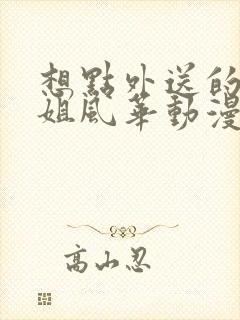 想點外送的
姐風華動漫
高山忍